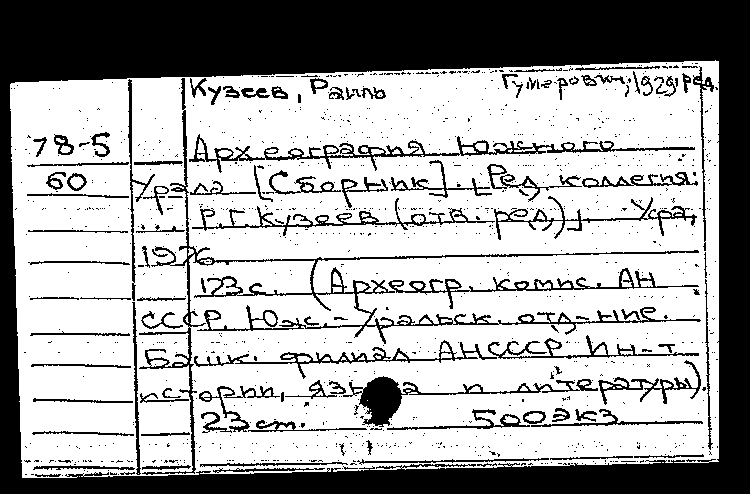 Кузеев, Раиль Гумерович, 1929, ред.
78-5 Археография Южного
60 Урала [Сборник]. [Ред. коллегия:
... Р.Г. Кузеев (отв. ред.)]. Уфа,
1976.
173 с. (Археогр. комис. АН
СССР. Юж.-Уральск. отд-ние.
Башк. филиал АНСССР Ин-т
истории, языка и литературы).
23 cm. 500 экз